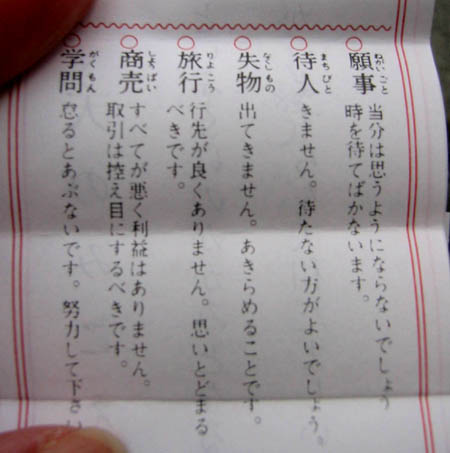 願事 ねがいごと
当分は思うようにならないでしょう
時を待てばかないます。
待人 まちびと
きません。待たない方がよいでしょう。
失物 なくしもの
出てきません。あきらめることです。
旅行 りょこう
行先が良くありません。思いとどまる
べきです。
商売 しょうばい
すべてが悪く利益はありません。
取引は控え目にするべきです。
学問 がくもん
怠るとあぶないです。努力して下さい